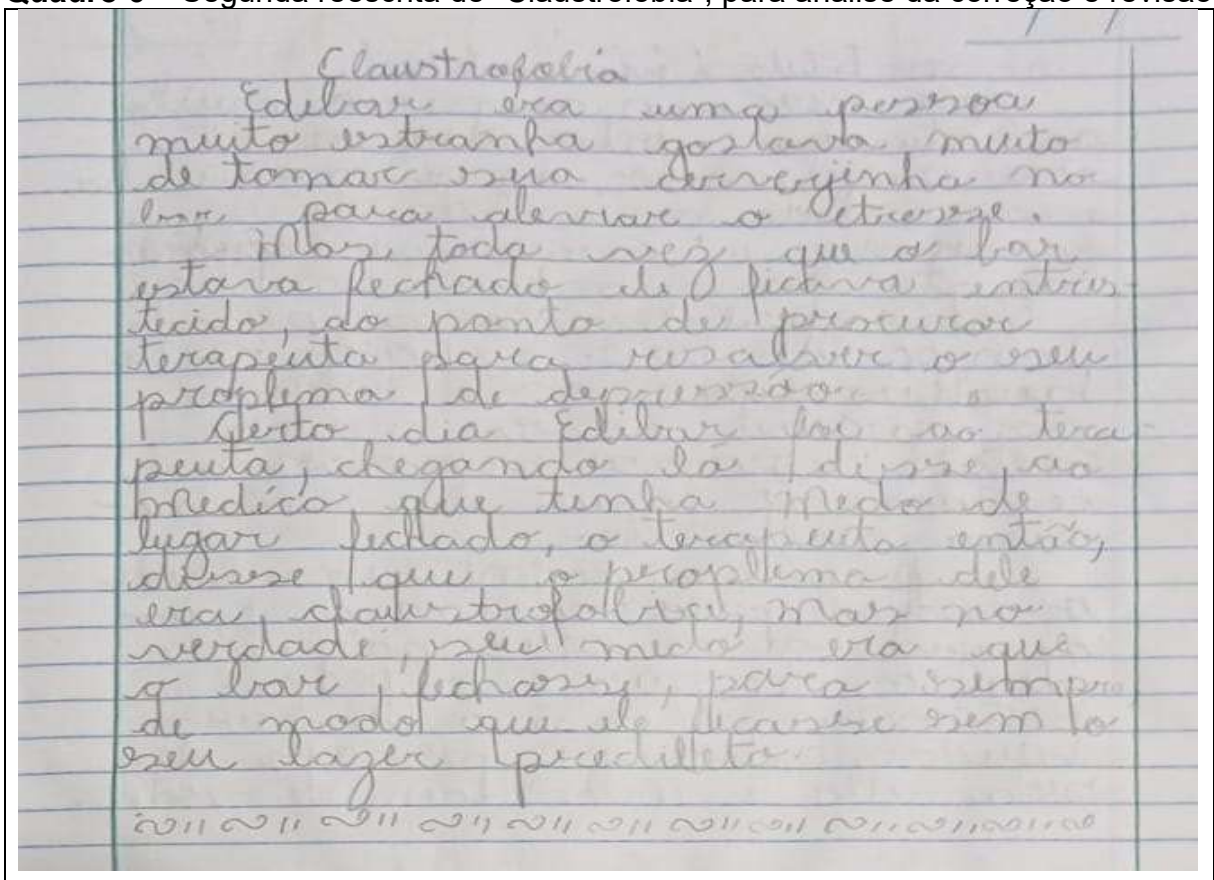 Claustrofobia
Edibar era uma pessoa
muito estranha gostava muito
de tomar sua cervejinha no
bar para aleviar o etresse.
Mas, toda vez que o bar
estava fechado ele ficava entris
tecido, ao ponto de procurar
terapeuta para resolver o seu
proplema de depressão.
Certo dia Edibar foi ao tera
peuta, chegando la disse, ao
medico, que tinha medo de
lugar fechado, o terapeuta então,
disse que o proplema dele
era, claustrofobia, mas na
verdade, seu medo era que
o bar, fechasse, para sempre
de modo que ele ficasse sem o
seu lazer predileto.